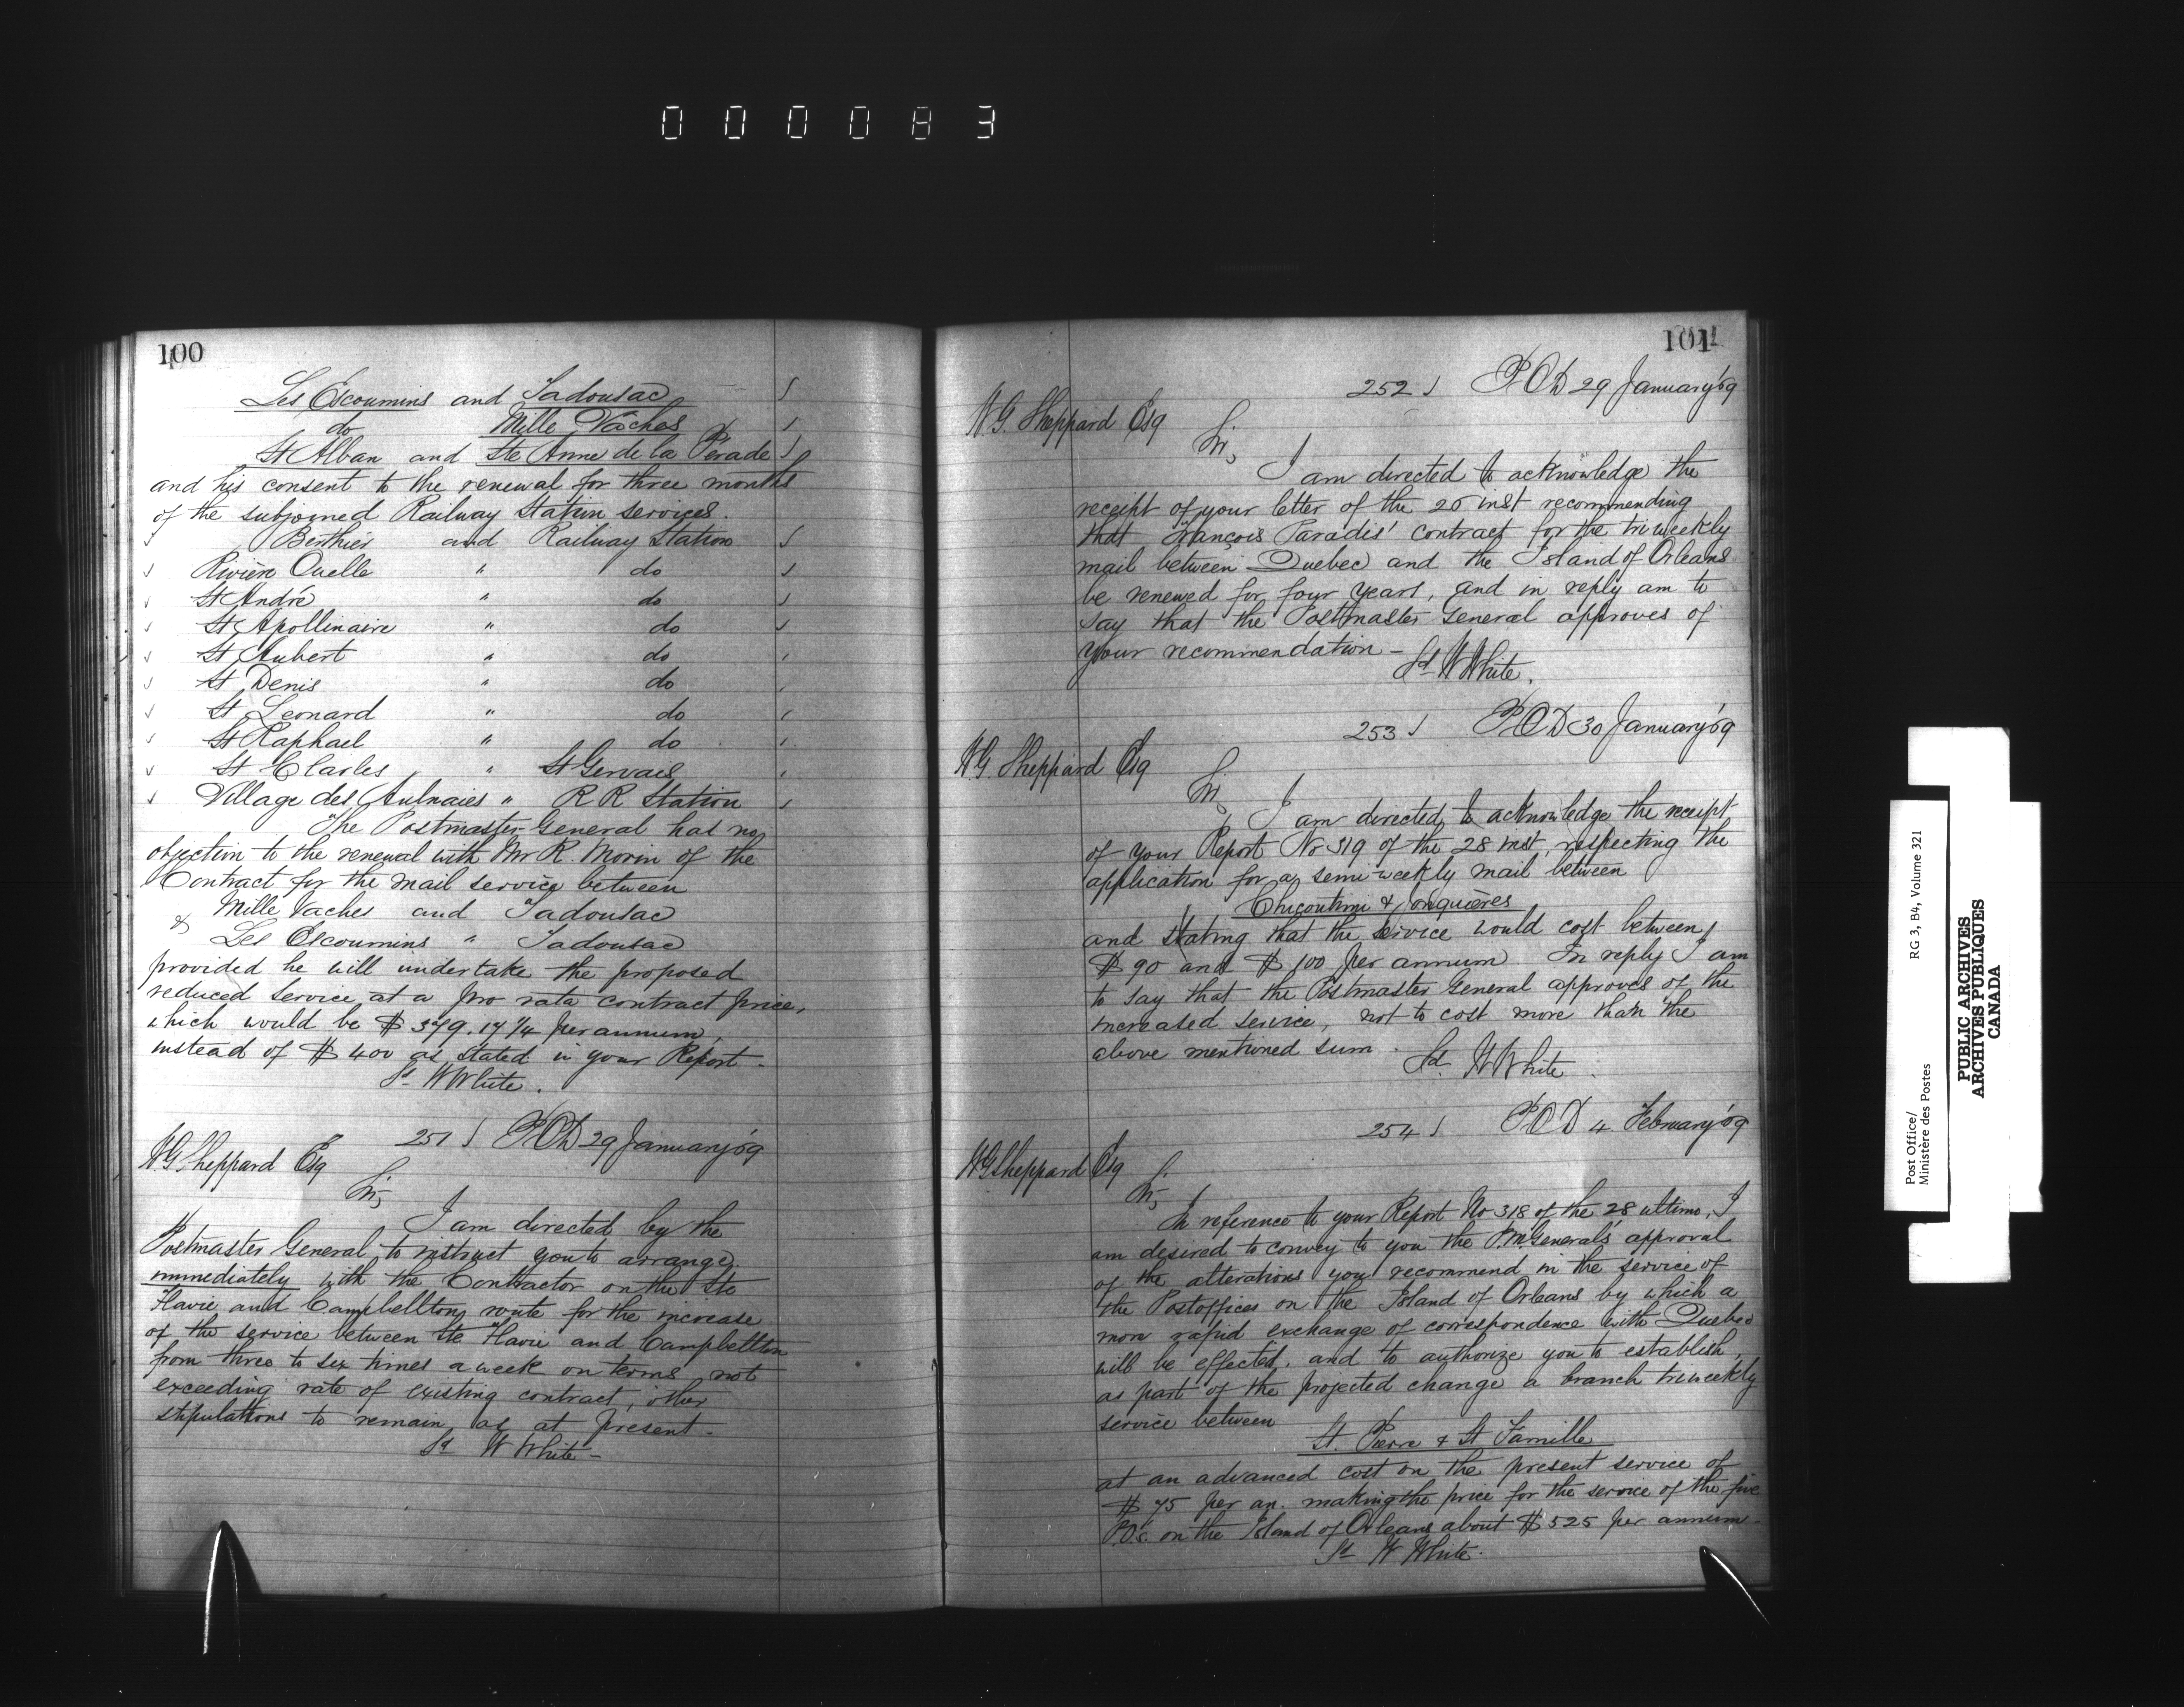 000083
100
Les Escoumins and Tadousac
do Mille Vaches
St Alban and Ste Anne de la Perade
and his consent to the renewal for three months
of the subjoined Railway Station services.
Berthier and Railway Station
Rivière Ouelle " do
St André " do
St Apollinaire " do
St Aubert " do
St Denis " do
St Leonard " do
St Raphael " do
St Charles " St Gervais
Village des Aulnaies " R R Station
The Postmaster General has no
objection to the renewal with Mr R. Morin of the
Contract for the mail service between
Mille Vaches and Tadousac
& Les Escoumins " Tadousac
provided he will undertake the proposed
reduced service at a pro rata contract price,
which would be $379.17 1/4 per annum,
instead of $400 as stated in your Report.
Sd W White.
251 POD 29 January '69
W.G. Sheppard Esq
Sir,
I am directed by the
Postmaster General to instruct you to arrange
immediately with the Contractor on the Ste
Flavie and Campbellton route for the increase
of the service between Ste Flavie and Campbellton
from three to six times a week on terms not
exceeding rate of existing contract, other
stipulations to remain as at present.
Sd W White -
101
252 POD 29 January '69
W.G. Sheppard Esq
Sir,
I am directed to acknowledge the
receipt of your letter of the 26 inst recommending
that François Paradis' contract for the tri weekly
mail between Quebec and the Island of Orleans
be renewed for four years, and in reply am to
say that the Postmaster General approves of
your recommendation -
Sd W White.
253 POD 30 January '69
W.G. Sheppard Esq
Sir,
I am directed to acknowledge the receipt
of your Report No 319 of the 28 inst, respecting the
application for a semi-weekly mail between
Chicoutimi & Jonquières
and stating that the service would cost between
$90 and $100 per annum. In reply I am
to say that the Postmaster General approves of the
increased service, not to cost more than the
above mentioned sum.
Sd. W White
254 POD 4 February '69
W G Sheppard Esq
Sir,
In reference to your Report No 318 of the 28 ultimo, I
am desired to convey to you the P.M. General's approval
of the alterations you recommend in the service of
the Postoffices on the Island of Orleans by which a
more rapid exchange of correspondence with Quebec
will be effected, and to authorize you to establish,
as part of the projected change a branch triweekly
service between
St. Pierre & St Famille
at an advanced cost on the present service of
$75 per an. making the price for the service of the five
P.O's. on the Island of Orleans about $525 per annum.
Sd W White.
Post Office/
Ministère des Postes
RG 3, B4, Volume 321
PUBLIC ARCHIVES
ARCHIVES PUBLIQUES
CANADA